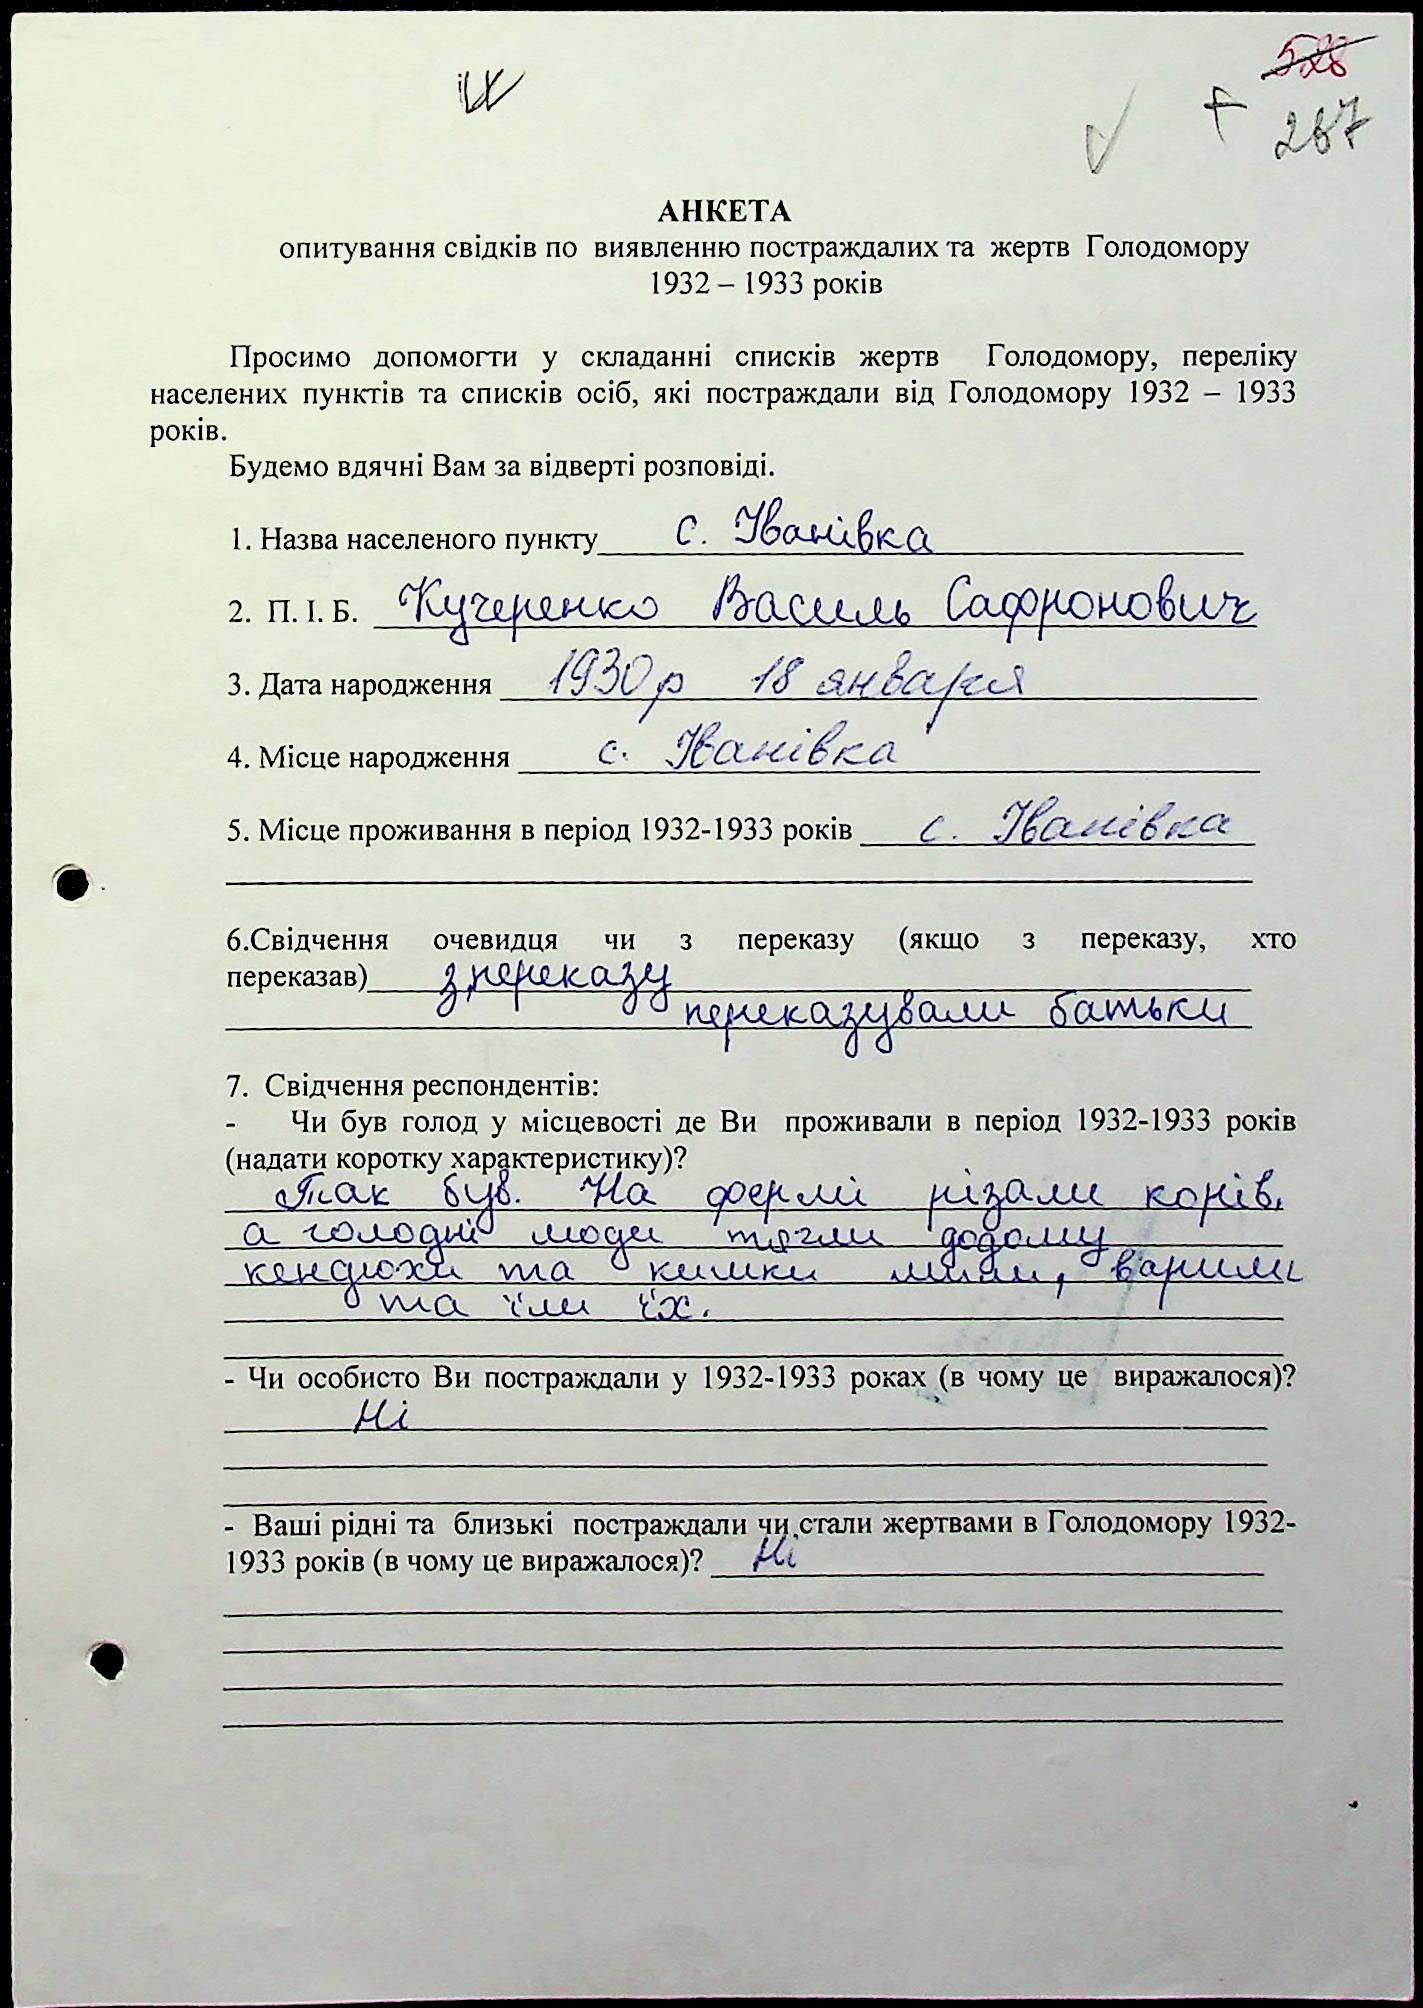 528
287
АНКЕТА
опитування свідків по виявленню постраждалих та жертв Голодомору
1932 – 1933 років
Просимо допомогти у складанні списків жертв Голодомору, переліку
населених пунктів та списків осіб, які постраждали від Голодомору 1932 – 1933
років.
Будемо вдячні Вам за відверті розповіді.
1. Назва населеного пункту с. Іванівка
2. П. І. Б. Кучеренко Василь Сафронович
3. Дата народження 1930р 18 января
4. Місце народження с. Іванівка
5. Місце проживання в період 1932-1933 років с. Іванівка
6.Свідчення очевидця чи з переказу (якщо з переказу, хто
переказав) з переказу
переказували батьки
7. Свідчення респондентів:
- Чи був голод у місцевості де Ви проживали в період 1932-1933 років
(надати коротку характеристику)?
Так був. На фермі різали корів,
а голодні люди тягли додому
кендюхи та кишки мили, варили
та їли їх.
- Чи особисто Ви постраждали у 1932-1933 роках (в чому це виражалося)?
Ні
- Ваші рідні та близькі постраждали чи стали жертвами в Голодомору 1932-
1933 років (в чому це виражалося)? Ні